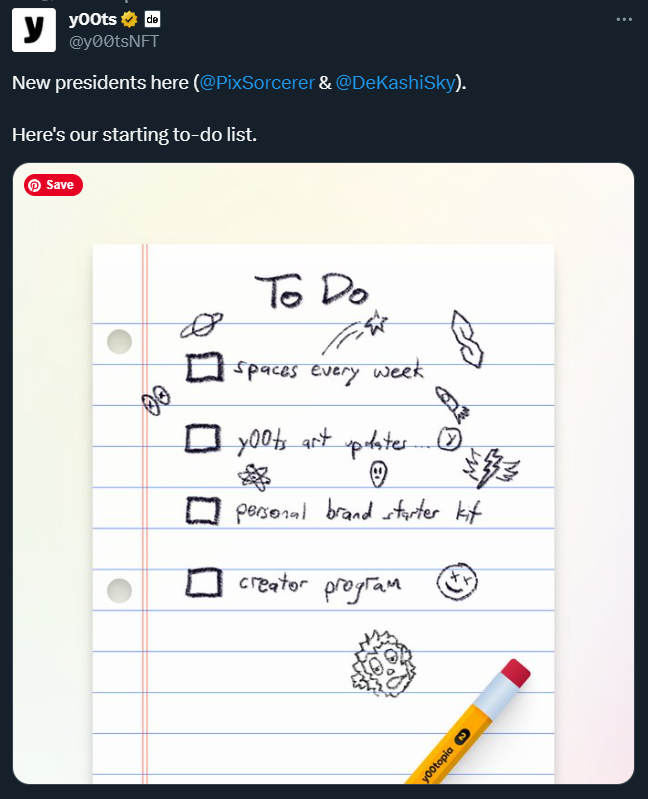 y00ts de
@y00tsNFT
New presidents here (@PixSorcerer & @DeKashiSky).
Here's our starting to-do list.
Save
To Do
spaces every week
y00ts art updates...
personal brand starter kit
creator program
y00topia 2